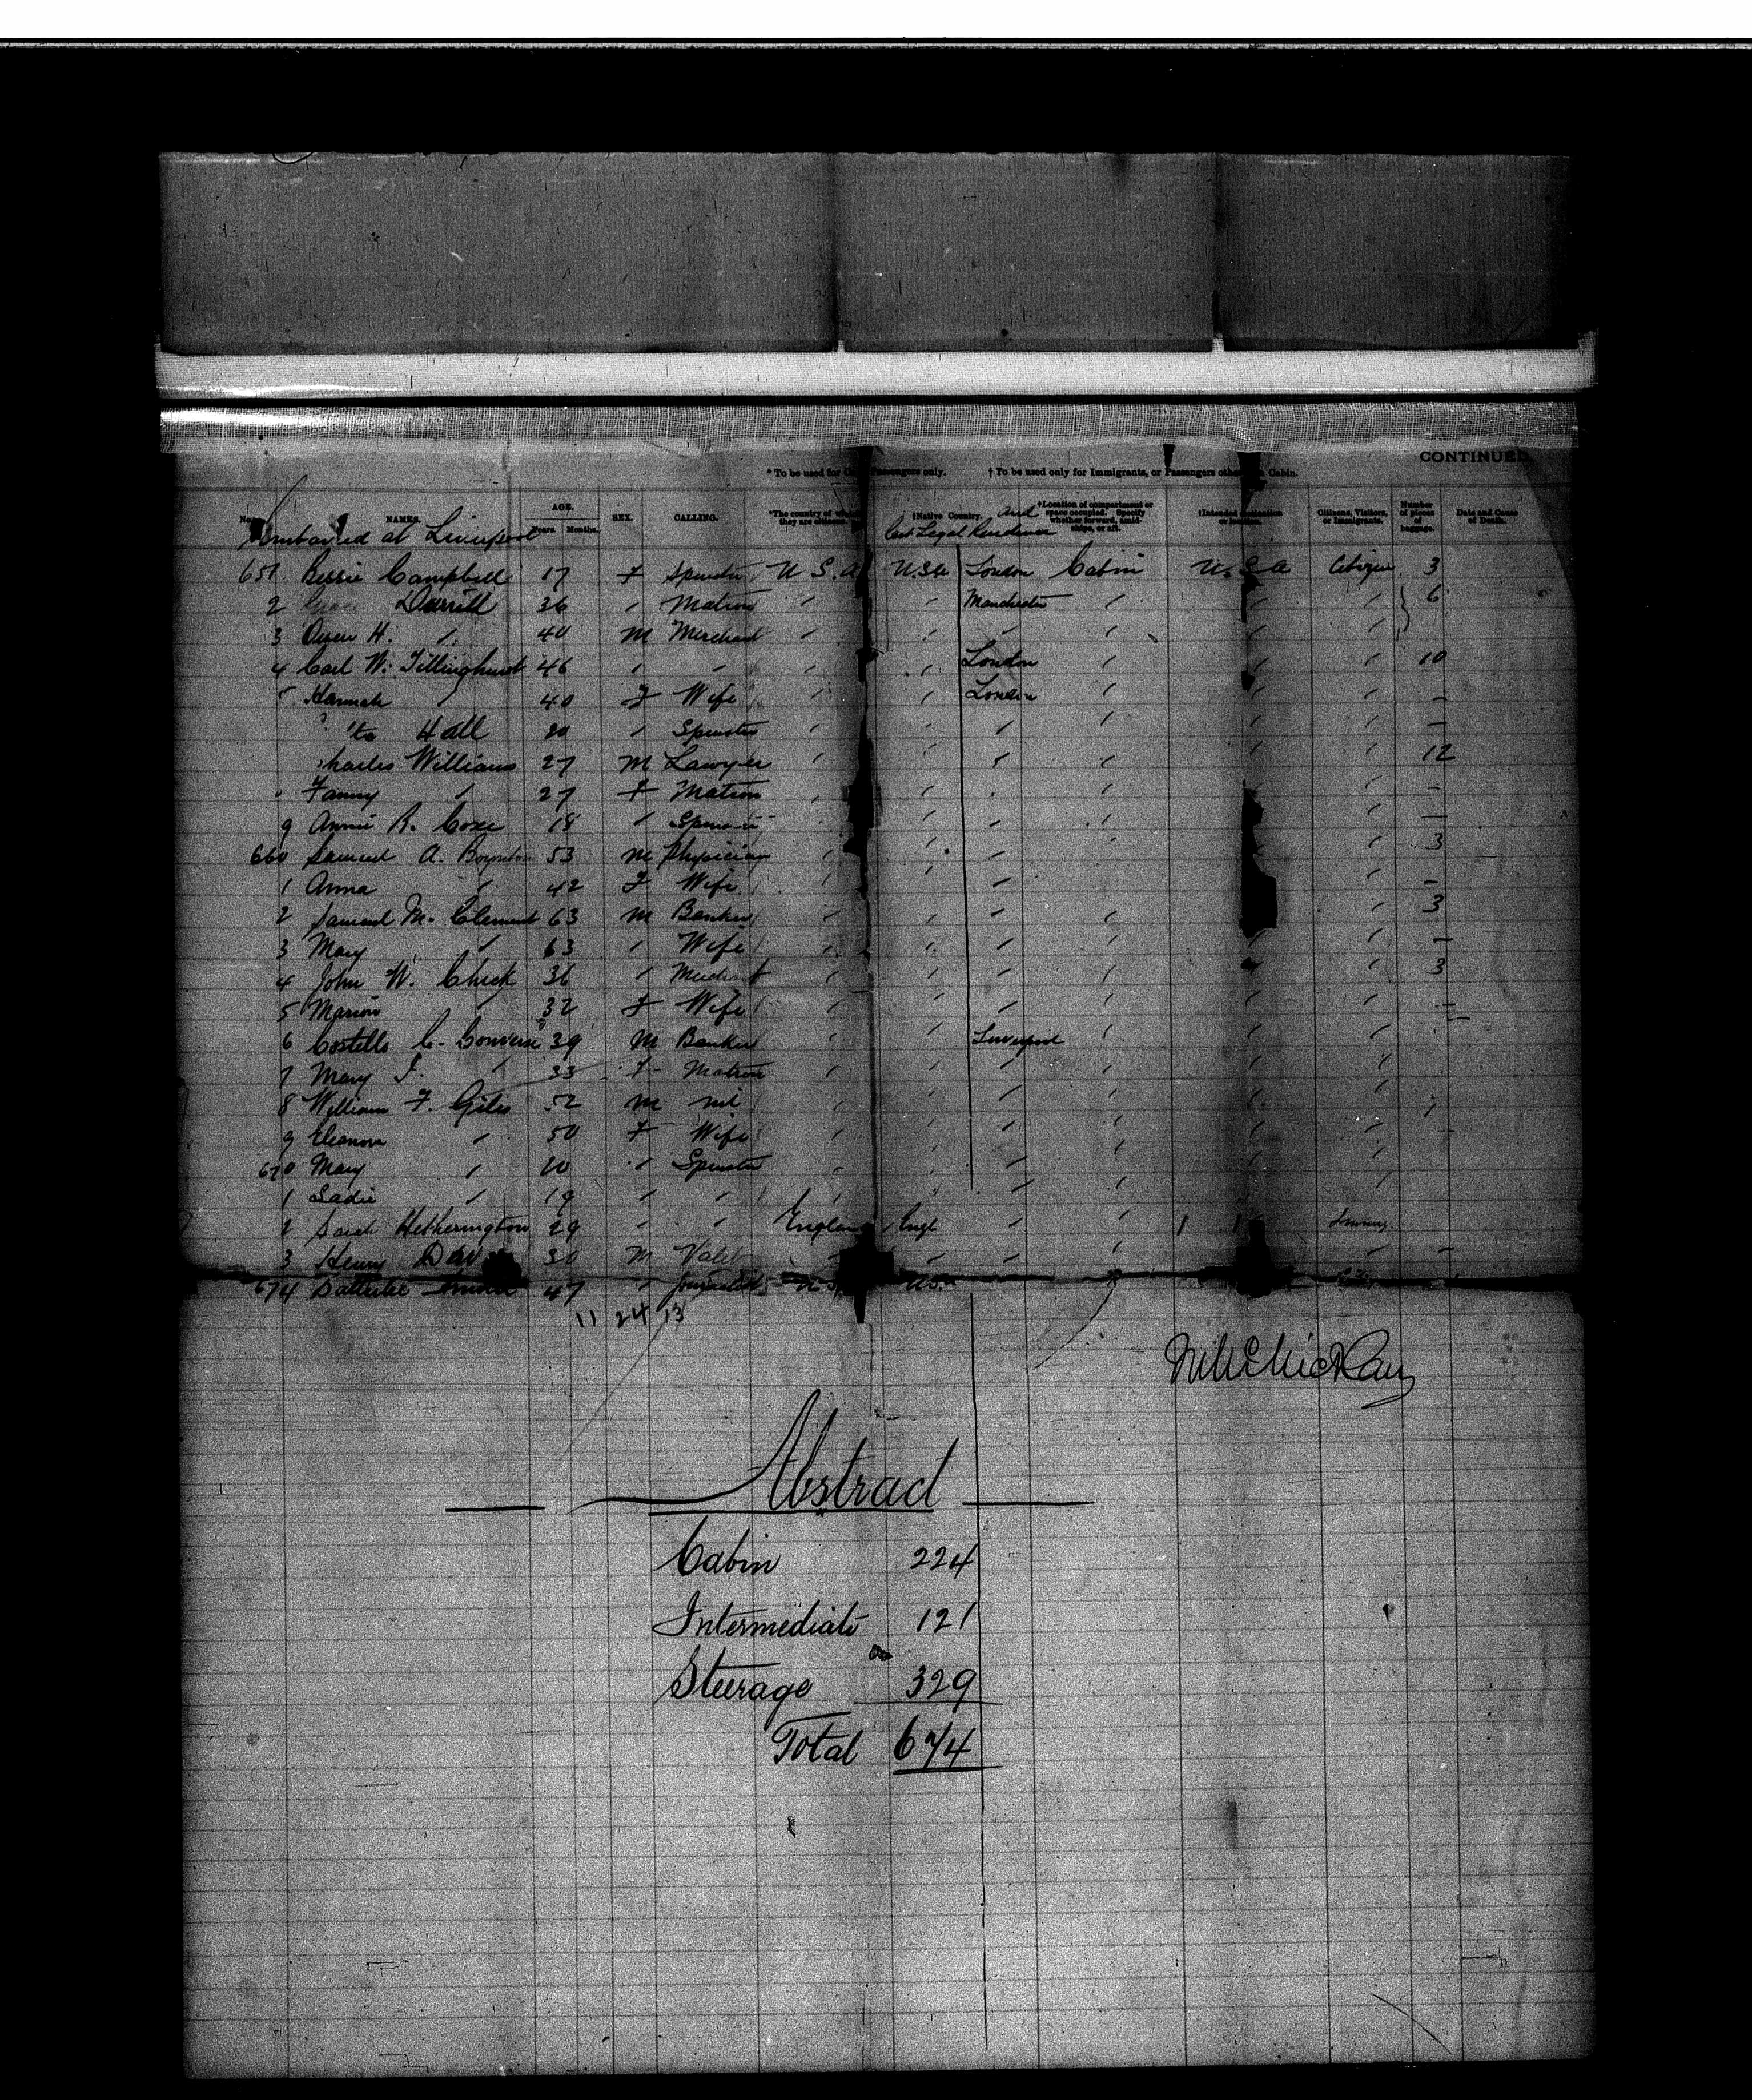 CONTINUED
* To be used for Passengers only. † To be used only for Immigrants, or Passengers Cabin.
NAMES. AGE. Years. Months. SEX. CALLING. *The country of they are citizens. †Native Country. and †Location of compartment or space occupied. Specify whether forward, amidships, or aft. †Intended Citizens, Visitors, or Immigrants. Number of pieces of baggage. Date and Cause of Death.
Embarked at Liverpool Last Legal Residence
651 Bessie Campbell 17 F Spinster U S. A U.S.A London Cabin U. S A Citizen 3
2 Durrill 36 " Matron " " Manchester " " " 6
3 Owen H. " 40 M Merchant " " " " " "
4 Carl W. Tillinghurst 46 " " " " London " " " 10
5 Hannah " 40 F Wife " " London " " " –
Hall 20 " Spinster " " " " " " –
harles Williams 27 M Lawyer " " " " " " 12
Fanny " 27 F Matron " " " " " " –
9 Annie R. Coxe 18 " Spinster " " " " " –
660 Samuel A. Boynton 53 M Physician " " " " " 3
1 Anna " 42 F Wife " " " " " –
2 Samuel M. Clement 63 M Banker " " " " " 3
3 Mary " 63 " Wife " " " " " " –
4 John W. Chick 36 " Merchant " " " " " " 3
5 Marion " 32 F Wife " " " " " " –
6 Costello C. Converse 39 M Banker " " Liverpool " " "
7 Mary I. " 33 F Matron " " " " " "
8 William F. Giles 52 M nil " " " " " "
9 Eleanor " 50 F Wife " " " " " " –
670 Mary " 20 " Spinster " " " " " "
1 Sadie " 19 " " " " " " " "
2 Sarah Hetherington 29 " " England Engl " "
3 Henry 30 M Valet " " " " –
674 47 " Journalist U S. U.S.
11 24 13
Abstract
Cabin 224
Intermediate 121
Steerage 329
Total 674